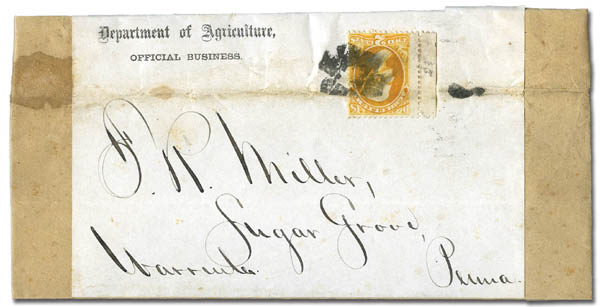 Department of Agriculture,
OFFICIAL BUSINESS.
Miller,
Sugar Grove,
Penna.